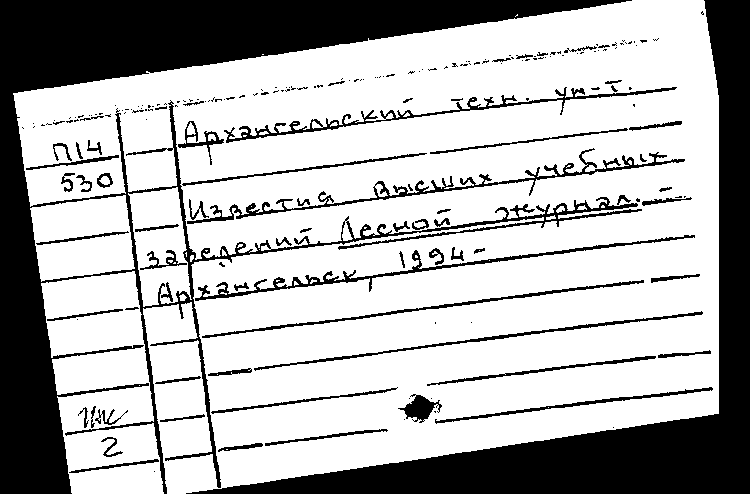 П14
530
Архангельский техн. ун-т.
Известия высших учебных
заведений. Лесной журнал. -
Архангельск, 1994 -
2